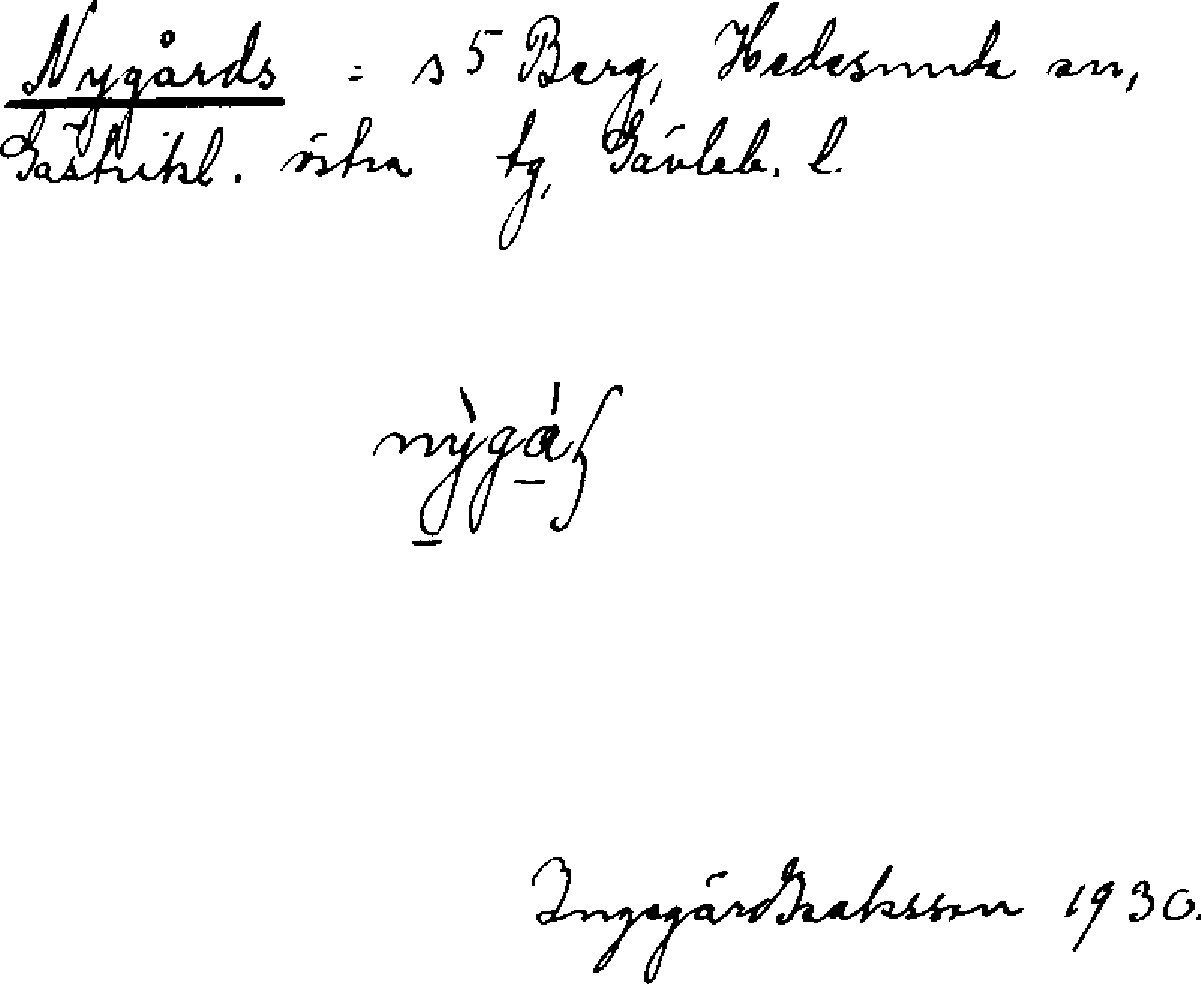 Nygårds = s 5 Berg, Hedesunda sn,
Gästrikl. östra tg, Gävleb. l.
nỳgá
Ingegärd Isaksson 1930.